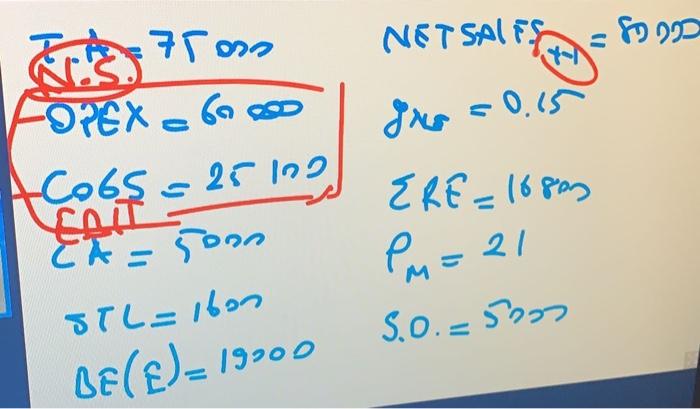 T.A = 75 000
N.S.
- OPEX = 60 000
- COGS = 25 100
EBIT
CA = 5000
STL = 1600
BE(E) = 19000
NET SALES t-1 = 80 000
gNS = 0.15
ΣRE = 16800
PM = 21
S.O. = 5000